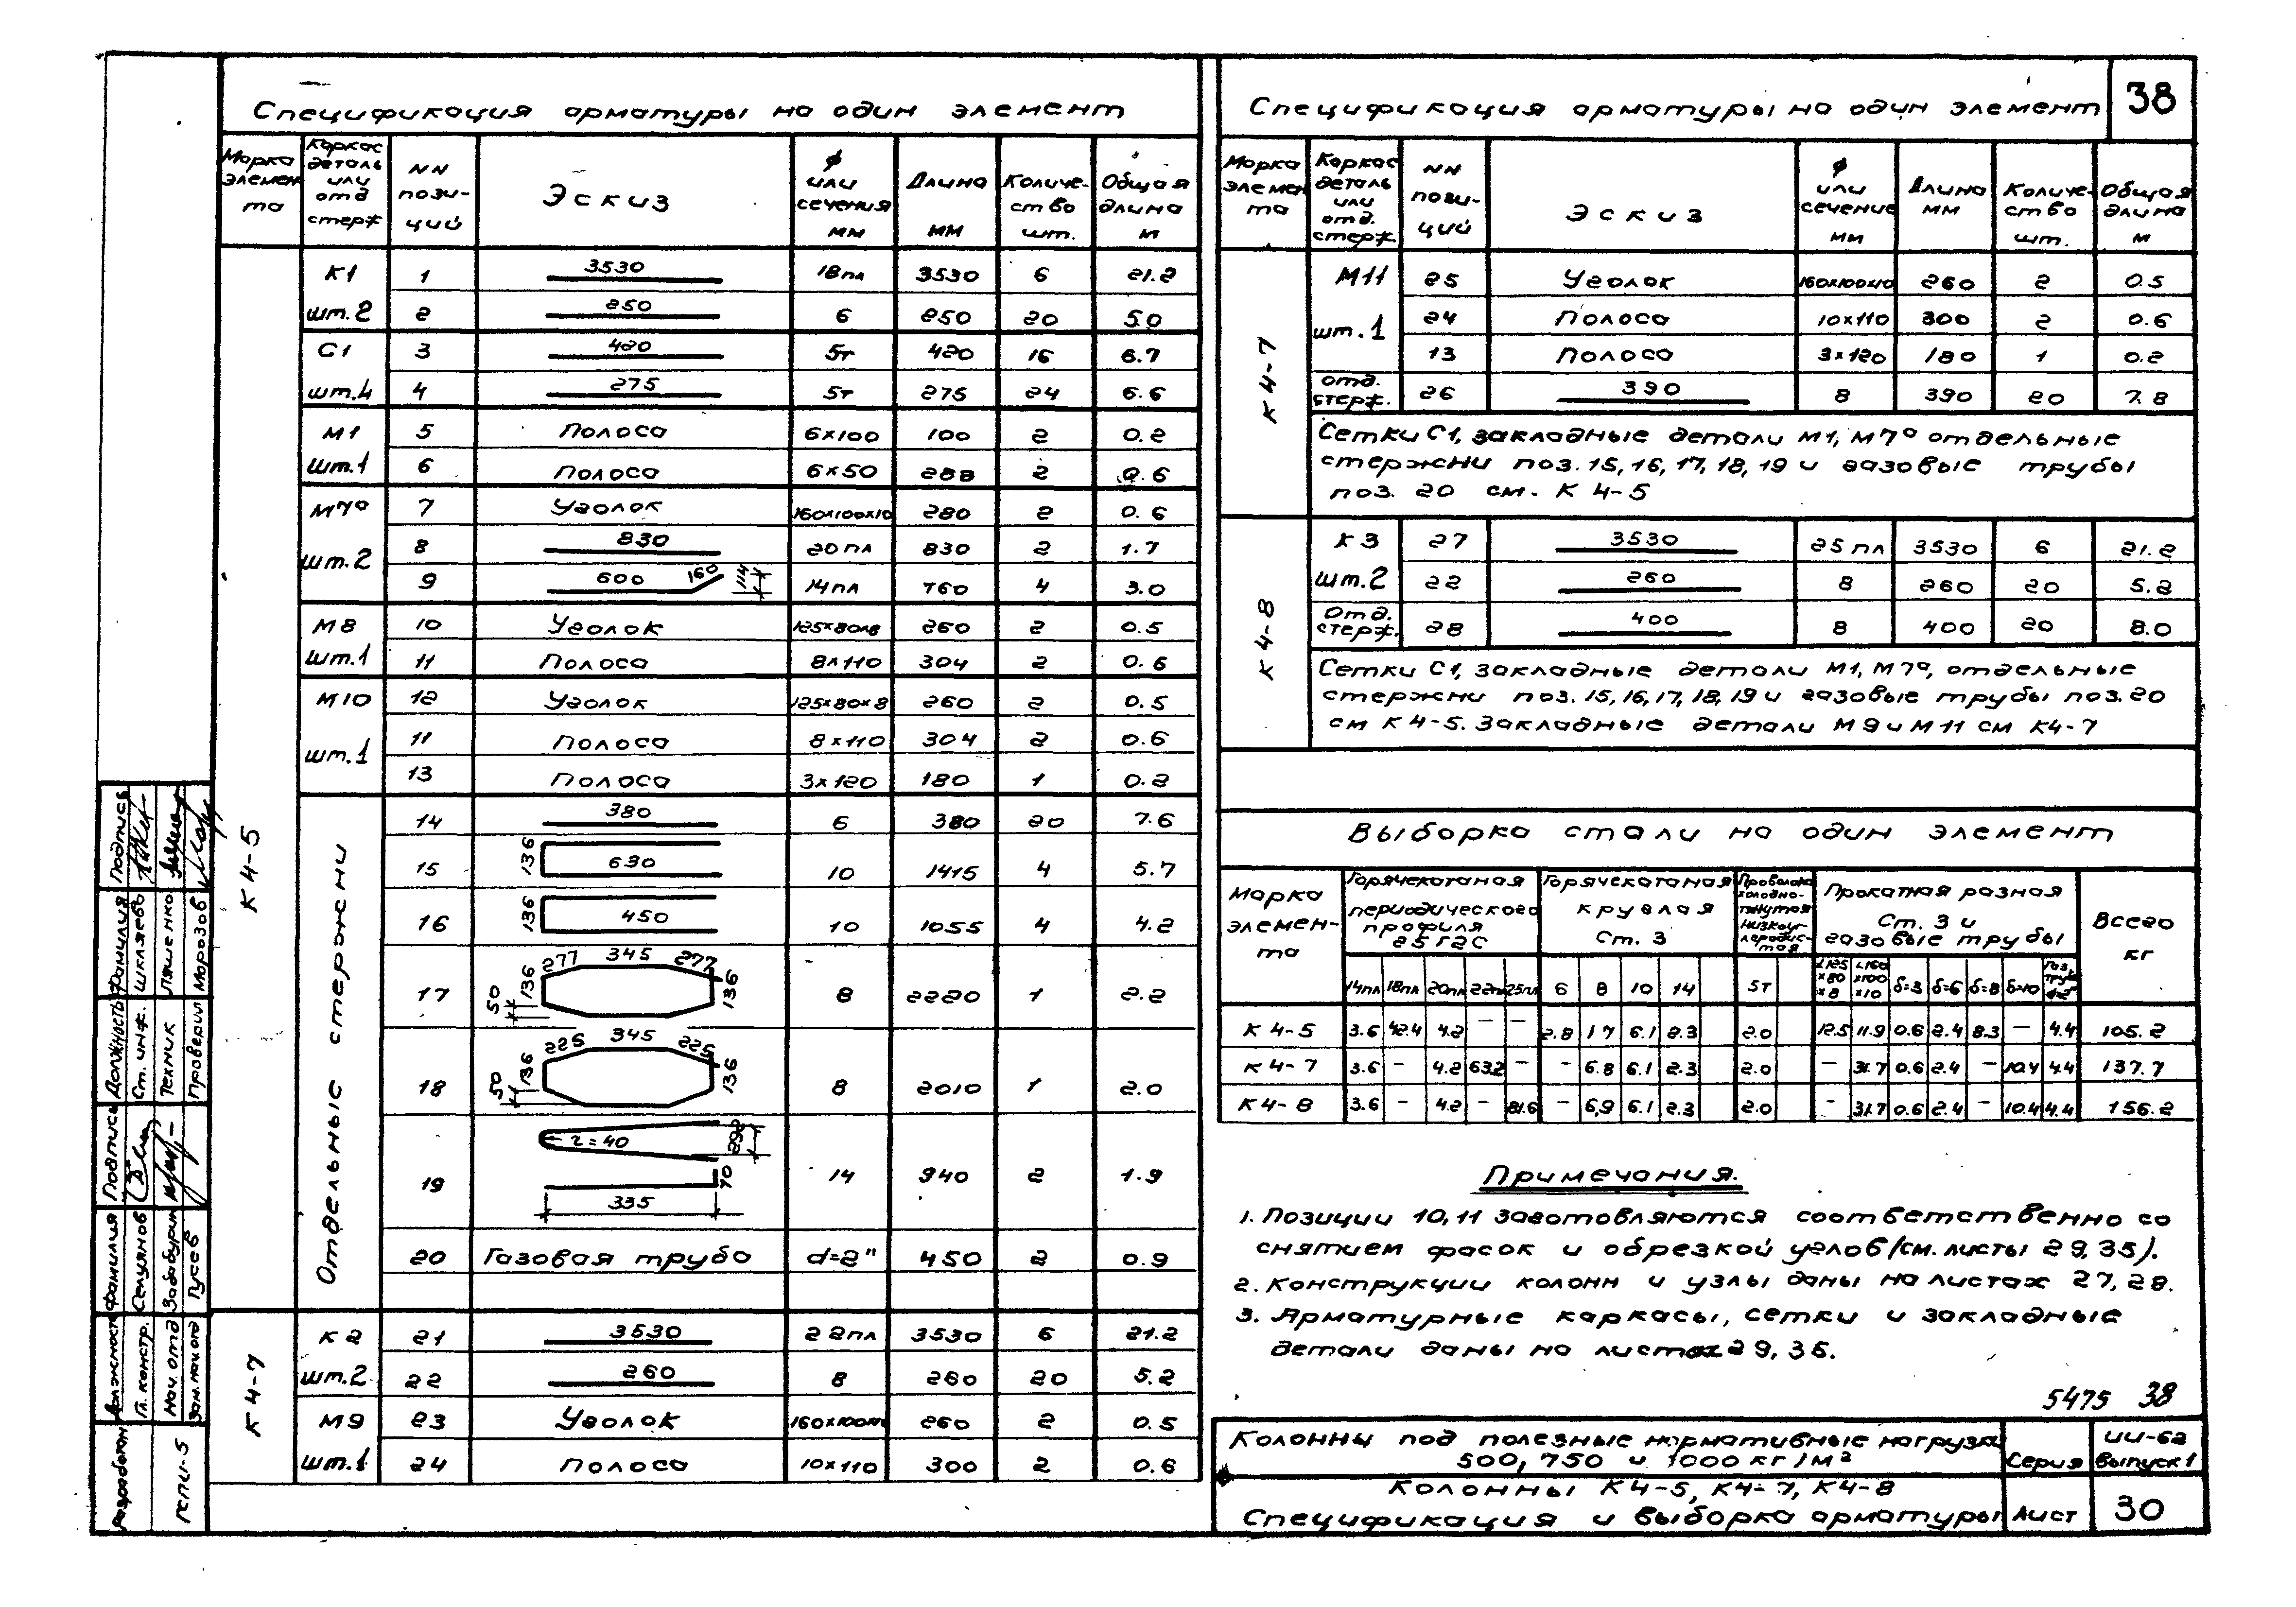 38
Спецификация арматуры на один элемент
Марка элемента | Каркас деталь или отд стерж | NN позиций | Эскиз | ϕ или сечения мм | Длина мм | Количество шт. | Общая длина м
К4-5
К1 шт.2 | 1 | 3530 | 18пл | 3530 | 6 | 21.2
2 | 250 | 6 | 250 | 20 | 5.0
С1 шт.4 | 3 | 420 | 5т | 420 | 16 | 6.7
4 | 275 | 5т | 275 | 24 | 6.6
М1 шт.1 | 5 | Полоса | 6×100 | 100 | 2 | 0.2
6 | Полоса | 6×50 | 288 | 2 | 0.6
М7ᵃ шт.2 | 7 | Уголок | 160×100×10 | 280 | 2 | 0.6
8 | 830 | 20пл | 830 | 2 | 1.7
9 | 600 160 114 | 14пл | 760 | 4 | 3.0
М8 шт.1 | 10 | Уголок | 125×80×8 | 260 | 2 | 0.5
11 | Полоса | 8×110 | 304 | 2 | 0.6
М10 шт.1 | 12 | Уголок | 125×80×8 | 260 | 2 | 0.5
11 | Полоса | 8×110 | 304 | 2 | 0.6
13 | Полоса | 3×120 | 180 | 1 | 0.2
Отдельные стержни
14 | 380 | 6 | 380 | 20 | 7.6
15 | 136 630 | 10 | 1415 | 4 | 5.7
16 | 136 450 | 10 | 1055 | 4 | 4.2
17 | 50 136 277 345 277 136 | 8 | 2220 | 1 | 2.2
18 | 50 136 225 345 225 136 | 8 | 2010 | 1 | 2.0
19 | r=40 70 335 | 14 | 940 | 2 | 1.9
20 | Газовая труба | d=2" | 450 | 2 | 0.9
К4-7
К2 шт.2 | 21 | 3530 | 22пл | 3530 | 6 | 21.2
22 | 260 | 8 | 260 | 20 | 5.2
М9 шт.1 | 23 | Уголок | 160×100×10 | 260 | 2 | 0.5
24 | Полоса | 10×110 | 300 | 2 | 0.6
Спецификация арматуры на один элемент
Марка элемента | Каркас деталь или отд. стерж. | NN позиций | Эскиз | ϕ или сечение мм | Длина мм | Количество шт. | Общая длина м
К4-7
М11 шт.1 | 25 | Уголок | 160×100×10 | 260 | 2 | 0.5
24 | Полоса | 10×110 | 300 | 2 | 0.6
13 | Полоса | 3×120 | 180 | 1 | 0.2
отд. стерж. | 26 | 390 | 8 | 390 | 20 | 7.8
Сетки С1, закладные детали М1, М7ᵃ отдельные
стержни поз. 15, 16, 17, 18, 19 и газовые трубы
поз. 20 см. К 4-5
К4-8
К3 шт.2 | 27 | 3530 | 25пл | 3530 | 6 | 21.2
22 | 260 | 8 | 260 | 20 | 5.2
Отд. стерж. | 28 | 400 | 8 | 400 | 20 | 8.0
Сетки С1, закладные детали М1, М7ᵃ, отдельные
стержни поз. 15, 16, 17, 18, 19 и газовые трубы поз. 20
см К 4-5. Закладные детали М9 и М11 см К4-7
Выборка стали на один элемент
Марка элемента | Горячекатаная периодического профиля 25Г2С | Горячекатаная круглая Ст. 3 | Проволока холоднотянутая низкоуглеродистая | Прокатная разная Ст. 3 и газовые трубы | Всего кг
14пл | 18пл | 20пл | 22пл | 25пл | 6 | 8 | 10 | 14 | 5т | L125×80×8 | L160×100×10 | δ=3 | δ=6 | δ=8 | δ=10 | Газ. труб. d=2"
К 4-5 | 3.6 | 42.4 | 4.2 | – | – | 2.8 | 1.7 | 6.1 | 2.3 | 2.0 | 12.5 | 11.9 | 0.6 | 2.4 | 8.3 | – | 4.4 | 105.2
К 4-7 | 3.6 | – | 4.2 | 63.2 | – | – | 6.8 | 6.1 | 2.3 | 2.0 | – | 31.7 | 0.6 | 2.4 | – | 10.4 | 4.4 | 137.7
К4-8 | 3.6 | – | 4.2 | – | 81.6 | – | 6,9 | 6.1 | 2.3 | 2.0 | – | 31.7 | 0.6 | 2.4 | – | 10.4 | 4.4 | 156.2
Примечания.
1. Позиции 10, 11 заготовляются соответственно со
снятием фасок и обрезкой углов (см. листы 29, 35).
2. Конструкции колонн и узлы даны на листах 27, 28.
3. Арматурные каркасы, сетки и закладные
детали даны на листах 29, 36.
5475 38
Колонны под полезные нормативные нагрузки
500, 750 и 1000 кг/м²
Серия
ИИ-62
выпуск 1
Колонны К4-5, К4-7, К4-8
Спецификация и выборка арматуры
Лист
30
Разработан | ГСПИ-5
Должность | Фамилия | Подпись | Должность | Фамилия | Подпись
Гл. констр. | Селуянов | Ст. инж. | Шкляева
Нач. отд | Забабурин | Техник | Ляшенко
Гусев | Проверил | Морозов